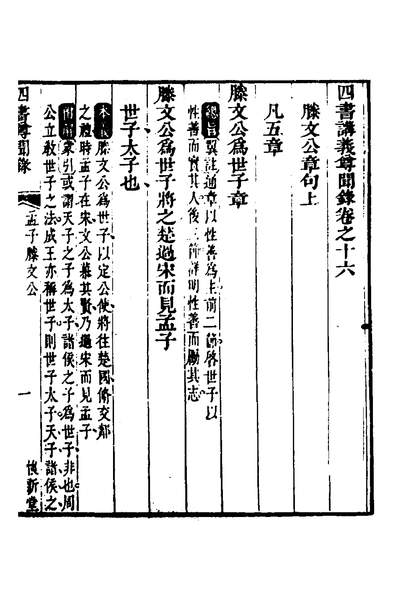 四書講義尊聞錄卷之十六
滕文公章句上
凡五章
滕文公爲世子章
總旨翼註通章以性善爲主前二節啓世子以
性善而實其人後三節詳明性善而勵其志
滕文公爲世子將之楚過宋而見孟子
世子太子也
本義滕文公爲世子以定公使將往楚國脩交鄰
之禮時孟子在宋文公慕其賢乃過宋而見孟子
附蒙引或謂天子之子爲太子諸侯之子爲世子非也周
公立教世子之法成王亦稱世子則世子太子天子諸侯之
四書尊聞錄
孟子滕文公
一
懷新堂